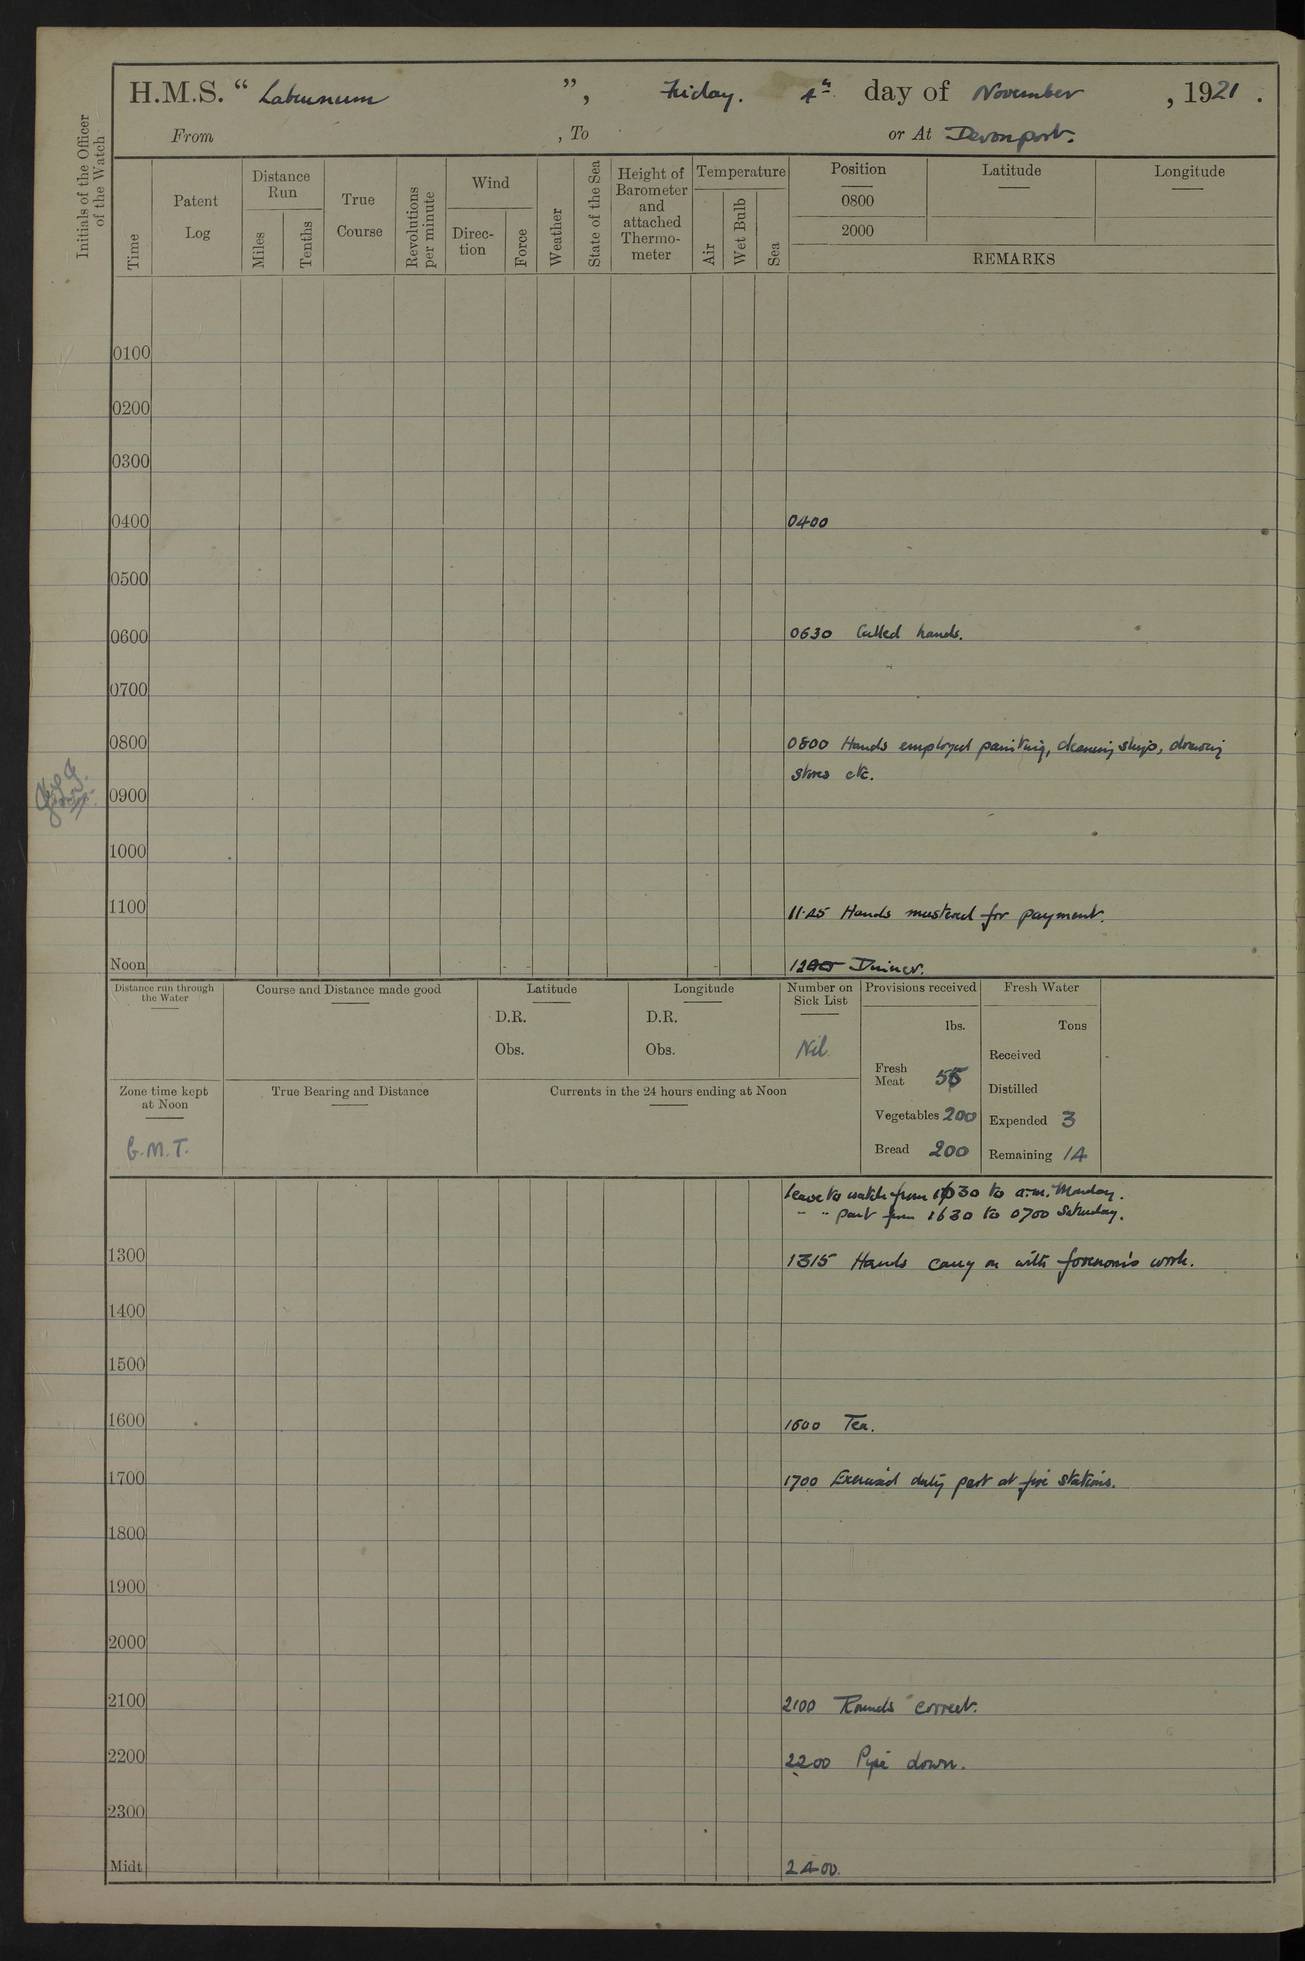 H.M.S. “ Laburnum ”, Friday. 4th day of November, 1921.
From , To or At Devonport.
Initials of the Officer of the Watch
Time
Patent Log
Distance Run
Miles
Tenths
True Course
Revolutions per minute
Wind
Direc-tion
Force
Weather
State of the Sea
Height of Barometer and attached Thermo-meter
Temperature
Air
Wet Bulb
Sea
Position Latitude Longitude
0800
2000
REMARKS
0100
0200
0300
0400 0400
0500
0600 0630 Called hands.
0700
0800 0800 Hands employed painting, cleaning ship, drawing
stores etc.
0900
1000
1100 11.45 Hands mustered for payment.
Noon 1200 Dinner.
Distance run through the Water
Course and Distance made good
Latitude
D.R.
Obs.
Longitude
D.R.
Obs.
Number on Sick List
Nil.
Provisions received
lbs.
Fresh Meat 56
Vegetables 200
Bread 200
Fresh Water
Tons
Received
Distilled
Expended 3
Remaining 14
Zone time kept at Noon
G.M.T.
True Bearing and Distance
Currents in the 24 hours ending at Noon
Leave to watch from 1630 to a.m. Monday.
" " part from 1630 to 0700 Saturday.
1300 1315 Hands carry on with forenoon's work.
1400
1500
1600 1600 Tea.
1700 1700 Exercised duty part at fire stations.
1800
1900
2000
2100 2100 Rounds correct.
2200 2200 Pipe down.
2300
Midt. 2400.